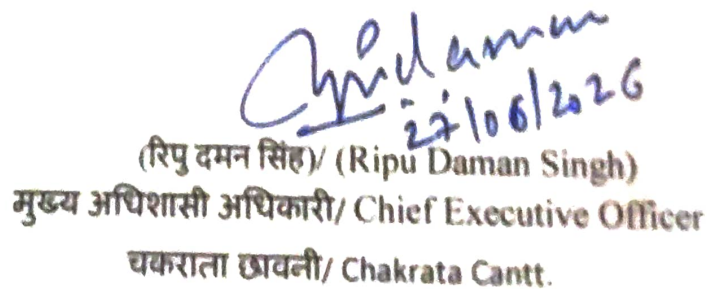 Ripudaman
27/06/2026
(रिपु दमन सिंह)/ (Ripu Daman Singh)
मुख्य अधिशासी अधिकारी/ Chief Executive Officer
चकराता छावनी/ Chakrata Cantt.